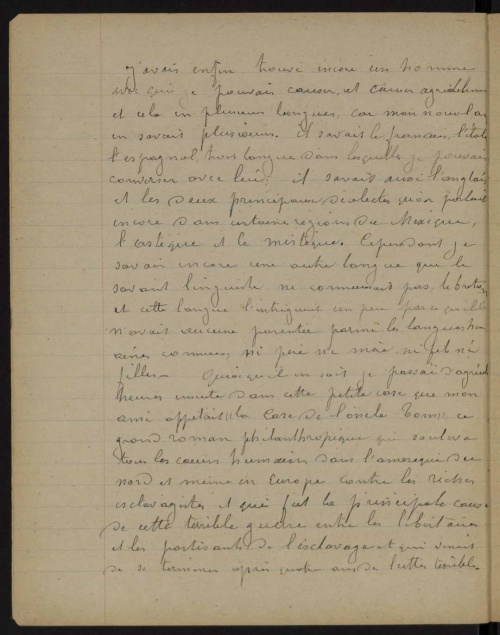 j'avais enfin trouvé encore un homme
avec qui je pouvais causer, et causer agréablement
et cela en plusieurs langues, car mon nouvel ami
en savait plusieurs. Il savait le francais, l'italien
l'espagnol, trois langue dans lesquelles je pouvais
converser avec lui; il savait aussi l'anglais
et les deux principaux dialectes qu'on parlait
encore dans certaine regions du Mexique,
l'astèque et le mistèque. Cependant je
savais encore une autre langue que le
savant linguiste ne connaissait pas, le breton
et cette langue l'intriguait un peu parce qu'elle
n'avait aucune parentée parmi les langues
connues, ni père ni mère ni fils ni
filles- Quoiqu'il en soit je passai d'agréables
heures ensuite dans cette petite case que mon
ami appelait la Case de l'oncle Tom; ce
grand roman philanthropique qui souleva
tous les cœurs humains dans l'amerique du
nord et même en Europe contre les riches
esclavagistes et qui fut la principale cause
de cette terrible guerre entre les
et les partisants de l'esclavage et qui venait
de se terminer après quatre ans de luttes terribles.